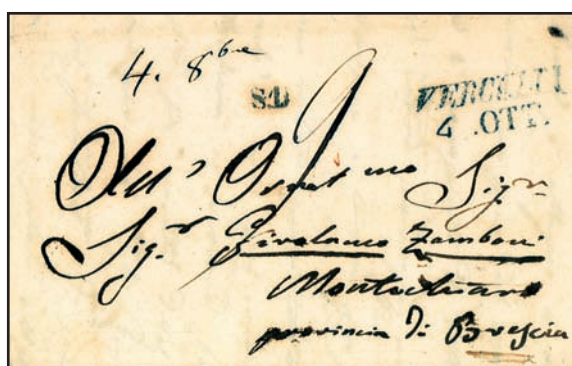 4. 8bre
SL
VERCELLI
4 OTT.
Sigr
Sigr Girolamo Zamboni
Montechiaro
provincia di Brescia